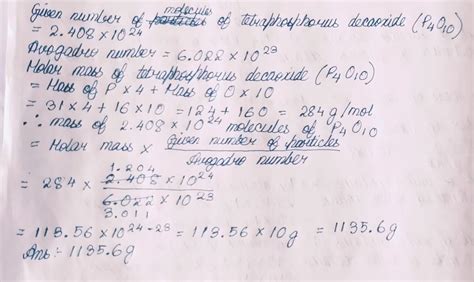 molecules
Given number of particles of tetraphosphorus decaoxide (P4O10)
= 2.408 × 10^24
Avogadro number = 6.022 × 10^23
Molar mass of tetraphosphorus decaoxide (P4O10)
= Mass of P × 4 + Mass of O × 10
= 31 × 4 + 16 × 10 = 124 + 160 = 284 g/mol
∴ mass of 2.408 × 10^24 molecules of P4O10
= Molar mass × Given number of particles
Avogadro number
1.204
= 284 × 2.408 × 10^24
6.022 × 10^23
3.011
= 113.56 × 10^24-23 = 113.56 × 10g = 1135.6g
Ans:- 1135.6g